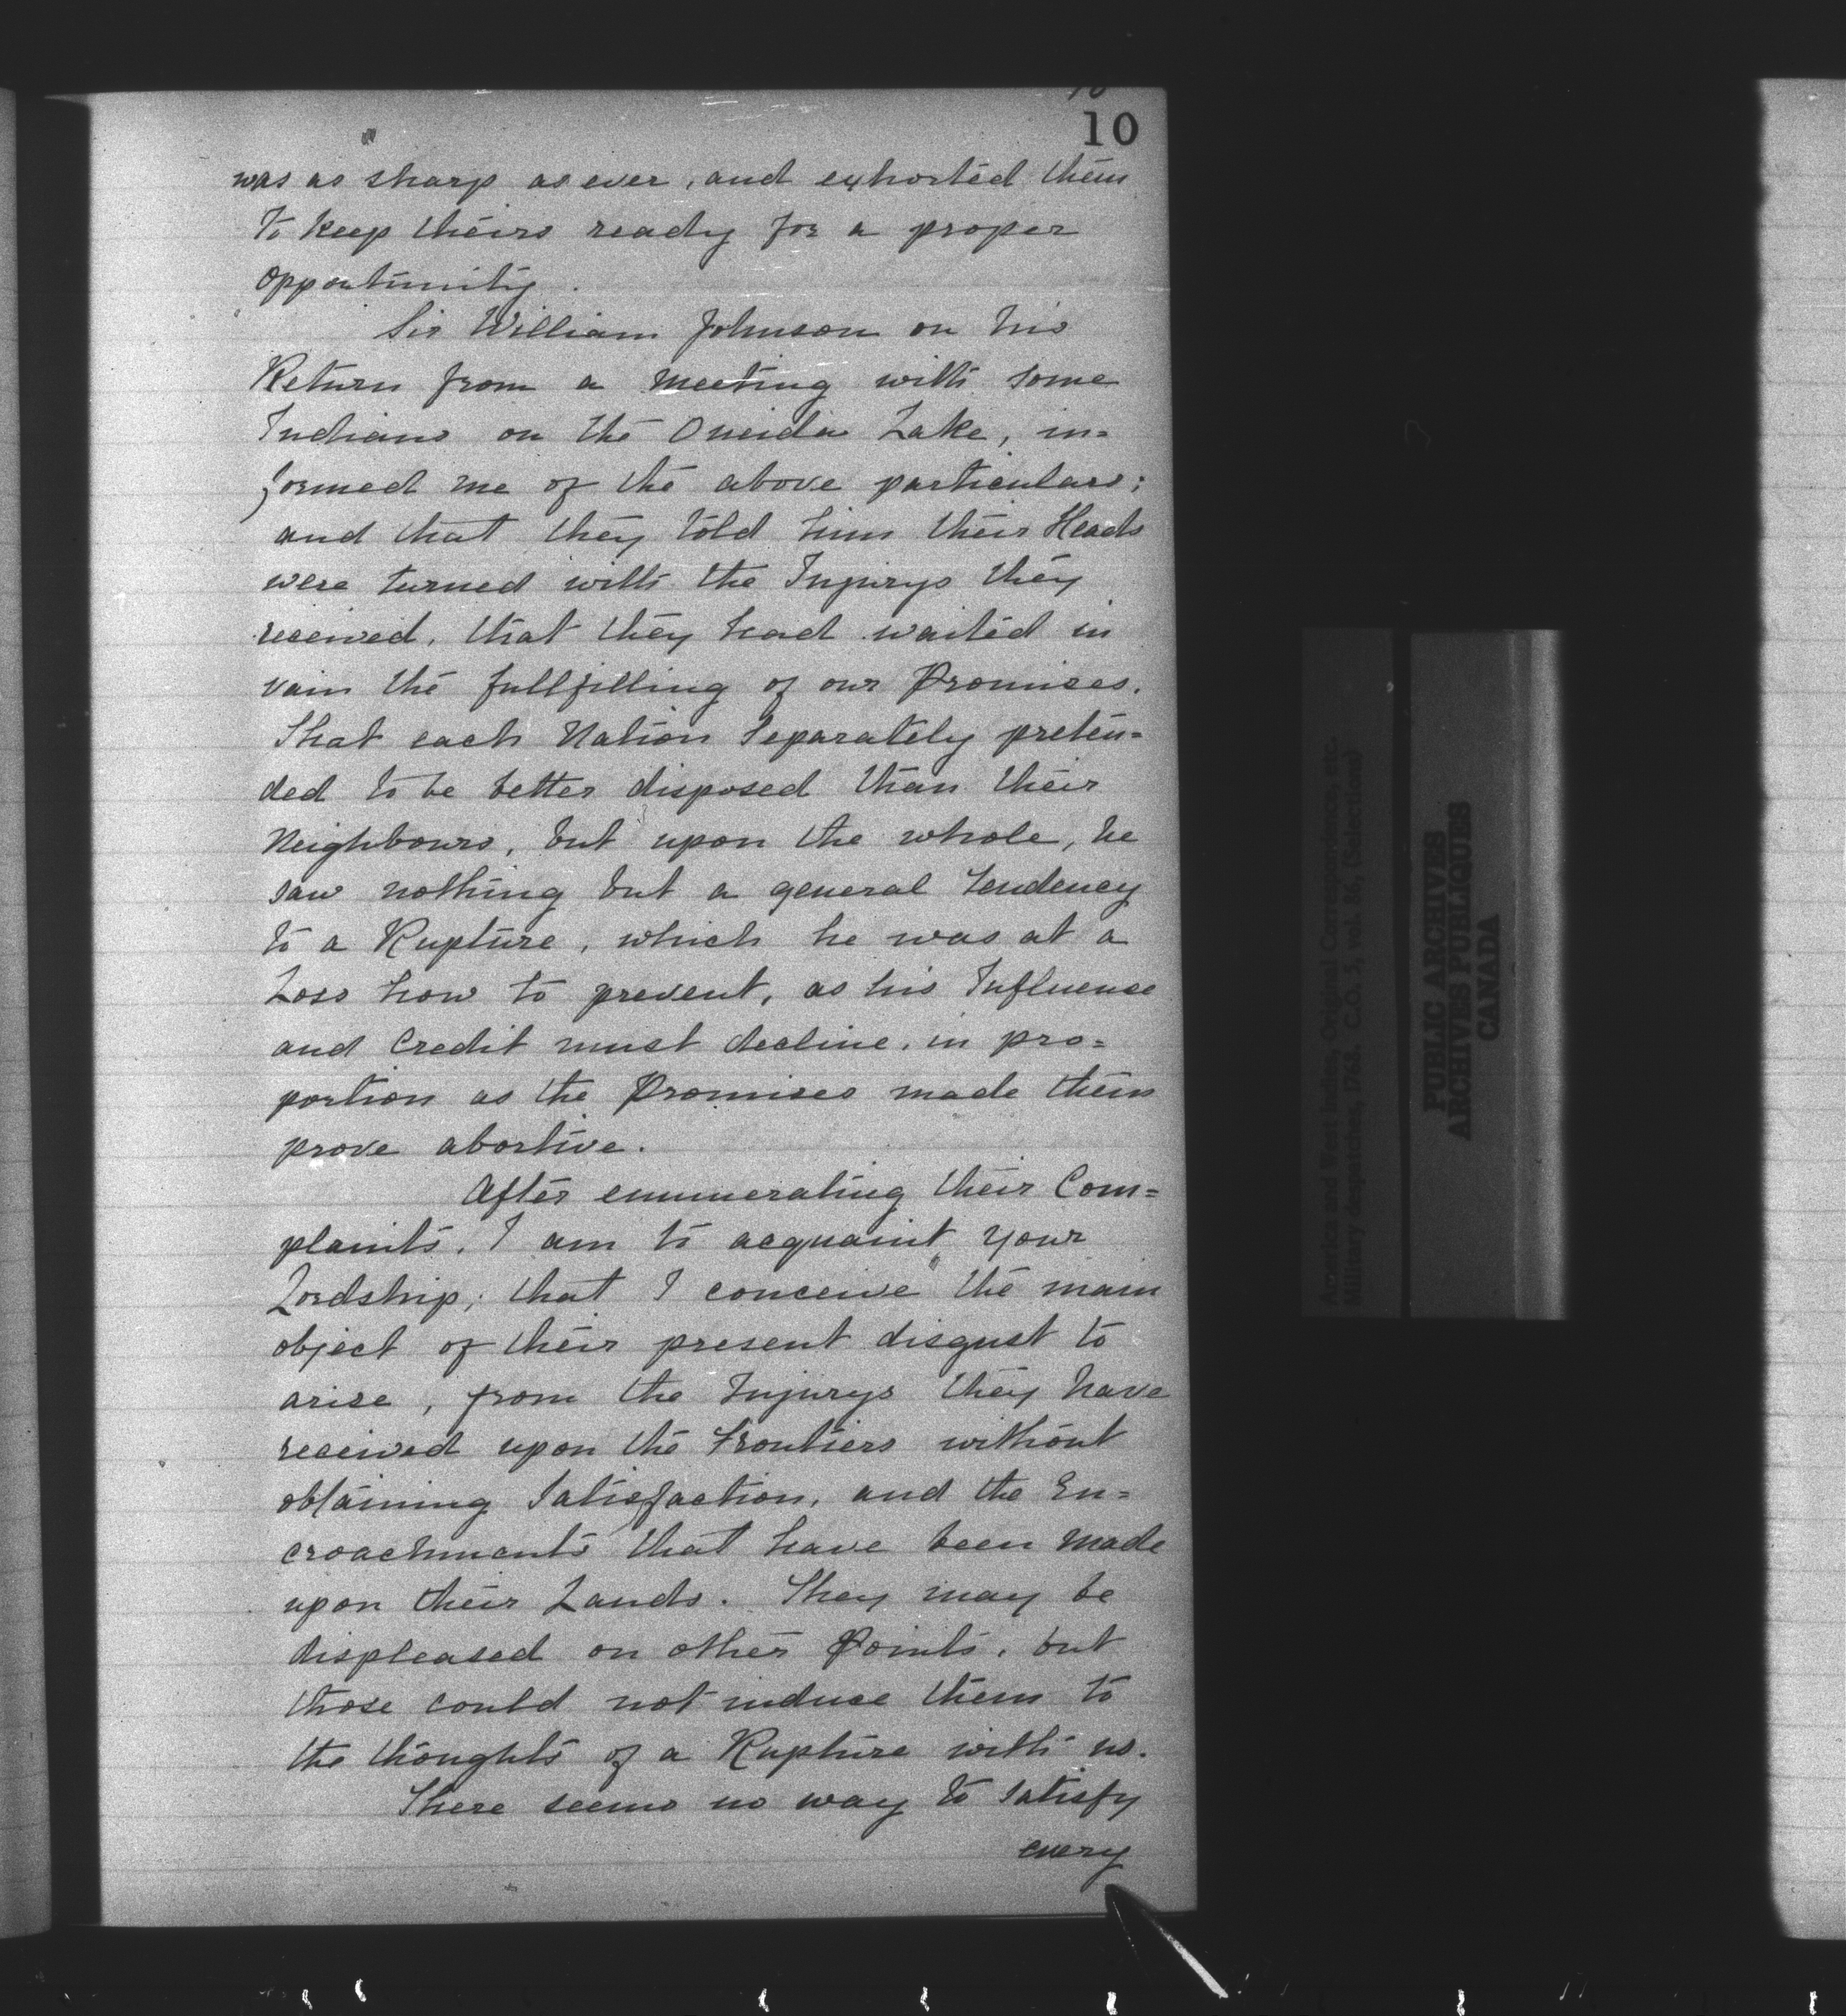 10
was as sharp as ever, and exhorted them
to keep theirs ready for a proper
opportunity.
Sir William Johnson on his
Return from a meeting with some
Indians on the Oneida Lake, in=
formed me of the above particulars;
and that they told him their Heads
were turned with the Injurys they
received, that they had waited in
vain the fullfilling of our Promises.
That each Nation Separately preten=
ded to be better disposed than their
Neighbours, but upon the whole, he
saw nothing but a general tendency
to a Rupture, which he was at a
Loss how to prevent, as his Influence
and Credit must decline, in pro=
portion as the Promises made them
prove abortive.
After enumerating their Com=
plaints, I am to acquaint your
Lordship; that I conceive the main
object of their present disgust to
arise, from the Injurys they have
received upon the Frontiers without
obtaining Satisfaction, and the En=
croachments that have been made
upon their Lands. They may be
displeased on other Points, but
those could not induce them to
the thoughts of a Rupture with us.
There seems no way to satisfy
every
America and West Indies, Original Correspondence, etc.
Military despatches, 1768. C.O. 5, vol. 86, (Selections)
PUBLIC ARCHIVES
ARCHIVES PUBLIQUES
CANADA